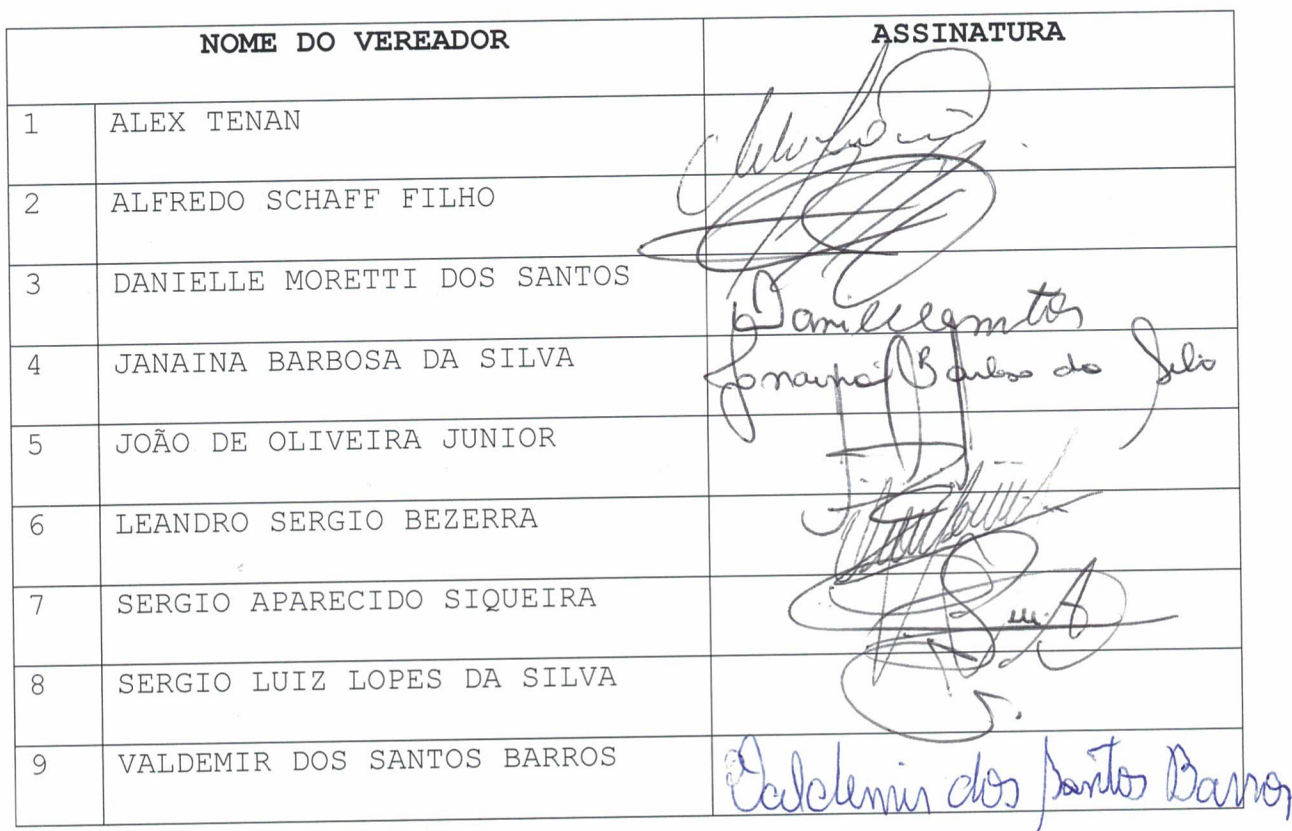 NOME DO VEREADOR ASSINATURA
1 ALEX TENAN
2 ALFREDO SCHAFF FILHO
3 DANIELLE MORETTI DOS SANTOS
4 JANAINA BARBOSA DA SILVA Janaina Barbosa da Silva
5 JOÃO DE OLIVEIRA JUNIOR
6 LEANDRO SERGIO BEZERRA
7 SERGIO APARECIDO SIQUEIRA
8 SERGIO LUIZ LOPES DA SILVA
9 VALDEMIR DOS SANTOS BARROS Valdemir dos Santos Barros